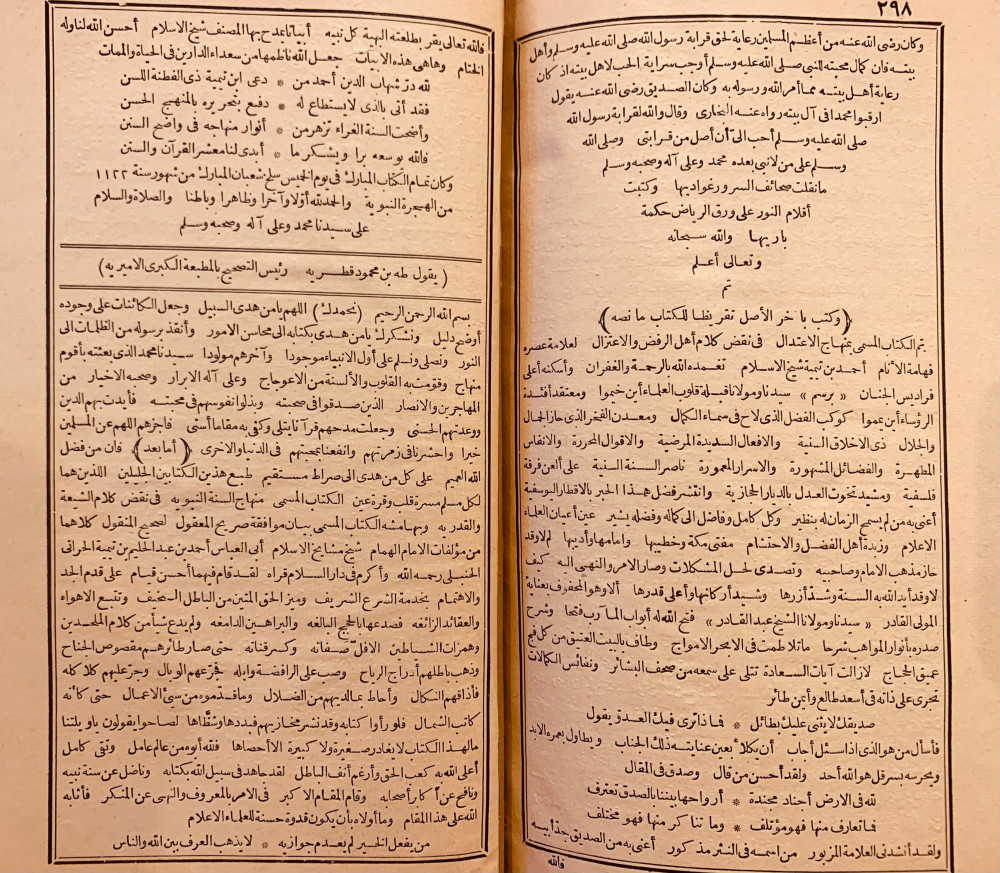 ٢٩٨
وكان رضى الله عنه من أعظم المسلمين رعاية لحق قرابة رسول الله صلى الله عليه وسلم وأهل
بيته فان كمال محبته للنبى صلى الله عليه وسلم أوجب سراية الحب لاهل بيته اذ كان
رعاية أهل بيته مما أمر الله ورسوله به وكان الصديق رضى الله عنه يقول
ارقبوا محمدا فى آل بيته رواه عنه البخارى وقال والله لقرابة رسول الله
صلى الله عليه وسلم أحب الىّ أن أصل من قرابتى وصلى الله
وسلم على من لا نبى بعده محمد وعلى آله وصحبه وسلم
ما نقلت صحائف السرور غواديها وكتبت
أقلام النور على ورق الرياض حكمة
باريها والله سبحانه
وتعالى أعلم
تم
(وكتب بآخر الأصل تقريظا للكتاب ما نصه)
تم الكتاب المسمى بمنهاج الاعتدال فى نقض كلام أهل الرفض والاعتزال لعلامة عصره
فهامة الأنام أحمد بن تيمية شيخ الاسلام تغمده الله بالرحمة والغفران وأسكنه أعلى
فراديس الجنان «برسم» سيدنا ومولانا قبلة قلوب العلماء أين خيموا ومعتقد أفئدة
الرؤساء أين يمموا كوكب الفضل الذى لاح فى سماء الكمال ومعدن الفخر الذى حاز الجمال
والجلال ذى الاخلاق السنية والافعال السديدة المرضية والاقوال المحررة والانفاس
المطهرة والفضائل المشهورة والاسرار المعمورة ناصر السنة السنية على ألعن فرقة
فلسفية ومشيد تخوت العدل بالديار الحجازية وانتشر فضل هذا الحبر بالاقطار اليوسفية
أعنى به من لم يسمح الزمان له بنظير وكل كامل وفاضل الى كماله وفضله يشير عين أعيان العلماء
الاعلام وزبدة أهل الفضل والاحتشام مفتى مكة وخطيبها وامامها وأديبها لم لا وقد
حاز مذهب الامام وصاحبيه وتصدى لحل المشكلات وصار الامر والنهى اليه كيف
لا وقد أيد الله به السنة وشد أزرها وشيد أركانها وأعلى قدرها ألا وهو المحفوف بعناية
المولى القادر «سيدنا ومولانا الشيخ عبد القادر» فتح الله له أبواب المآرب فتحا وشرح
صدره بأنوار المواهب شرحا ما تلاطمت فى الابحر الامواج وطاف بالبيت العتيق من كل فج
عميق الحجاج لا زالت آيات السعادة تتلى على سمعه من صحف البشائر ونفائس الكمالات
تجرى على ذاته فى أسعد طالع وأيمن طائر
صديقك لا يثنى عليك بطائل * فماذا ترى فيك العدو يقول
فأسأل من هو الذى اذا سئل أجاب أن يكلأ بعين عنايته ذلك الجناب ويطاول بعمره الابد
ويحرسه بسر قل هو الله أحد ولقد أحسن من قال وصدق فى المقال
لله فى الارض أجناد مجندة * أرواحها بيننا بالصدق تعترف
فما تعارف منها فهو مؤتلف * وما تناكر منها فهو مختلف
ولقد أنشدنى العلامة المزبور من اسمه فى النثر مذكور أعنى به من الصديق جد أبيه
فالله
فالله تعالى يقر بطلعته البهية كل نبيه أبياتا مدح بها المصنف شيخ الاسلام أحسن الله لنا وله
الختام وها هى هذه الأبيات جعل الله ناظمها من سعداء الدارين فى الحياة والممات
لله درّ شهاب الدين أحمد من * دعى ابن تيمية ذى الفطنة اللسن
فقد أتى بالذى لا يستطاع له * دفع بتحريره بالمنهج الحسن
وأضحت السنة الغراء تزهر من * أنوار منهاجه فى واضح السنن
فالله يوسعه برا ويشكر ما * أبدى لنا معشر القرآن والسنن
وكان تمام الكتاب المبارك فى يوم الخميس سلخ شعبان المبارك من شهور سنة ١١٢٢
من الهجرة النبوية والحمد لله أولا وآخرا وظاهرا وباطنا والصلاة والسلام
على سيدنا محمد وعلى آله وصحبه وسلم
(يقول طه بن محمود قطريه رئيس التصحيح بالمطبعة الكبرى الاميريه)
بسم الله الرحمن الرحيم (نحمدك) اللهم يا من هدى السبيل وجعل الكائنات على وجوده
أوضح دليل ونشكرك يا من هدى بكتابه الى محاسن الامور وأنقذ برسوله من الظلمات الى
النور ونصلى ونسلم على أول الانبياء موجودا وآخرهم مولودا سيدنا محمد الذى بعثته بأقوم
منهاج وقومت به القلوب والألسنة من الاعوجاج وعلى آله الابرار وصحبه الاخيار من
المهاجرين والانصار الذين صدقوا فى صحبته وبذلوا نفوسهم فى محبته فأيدت بهم الدين
ووعدتهم الحسنى وجعلت مدحهم قرآنا يتلى وكفى به مقاما أسنى فاجزهم اللهم عن المسلمين
خيرا واحشرنا فى زمرتهم وانفعنا بمحبتهم فى الدنيا والاخرى (أما بعد) فان من فضل
الله العميم على كل من هدى الى صراط مستقيم طبع هذين الكتابين الجليلين اللذين هما
لكل مسلم مسرة قلب وقرة عين الكتاب المسمى منهاج السنة النبويه فى نقض كلام الشيعة
والقدريه وبهامشه الكتاب المسمى بيان موافقة صريح المعقول لصحيح المنقول كلاهما
من مؤلفات الامام الهمام شيخ مشايخ الاسلام أبى العباس أحمد بن عبد الحليم بن تيمية الحرانى
الحنبلى رحمه الله وأكرم فى دار السلام قراه لقد قام فيهما أحسن قيام على قدم الجد
والاهتمام بخدمة الشرع الشريف وميز الحق المتين من الباطل السخيف وتتبع الاهواء
والعقائد الزائغه فصدعها بالحجج البالغه والبراهين الدامغه ولم يدع شيأ من كلام الملحدين
وهمزات الشياطين الا فلّ صفاته وكسر قناته حتى صار طائرهم مقصوص الجناح
وذهب باطلهم أدراج الرياح وصب على الرافضة وابله فجرّعهم الوبال وجرّ عليهم كلا كله
فأذاقهم النكال وأحاط بمالديهم من الضلال وما قدّموه من سيئ الاعمال حتى كأنه
كاتب الشمال فلو رأوا كتابه وقد نشر مخازيهم فبددها وشظّاها لصاحوا يقولون ياويلتنا
مالهذا الكتاب لا يغادر صغيرة ولا كبيرة الا أحصاها فلله أبوه من عالم عامل وتقى كامل
أعلى الله به كعب الحق وأرغم أنف الباطل لقد جاهد فى سبيل الله بكتابه وناضل عن سنة نبيه
ونافح عن أكابر أصحابه وقام المقام الاكبر فى الامر بالمعروف والنهى عن المنكر فأثابه
الله على هذا المقام وما أولاه بأن يكون قدوة حسنة للعلماء الاعلام
من يفعل الخير لم يعدم جوازيه * لا يذهب العرف بين الله والناس